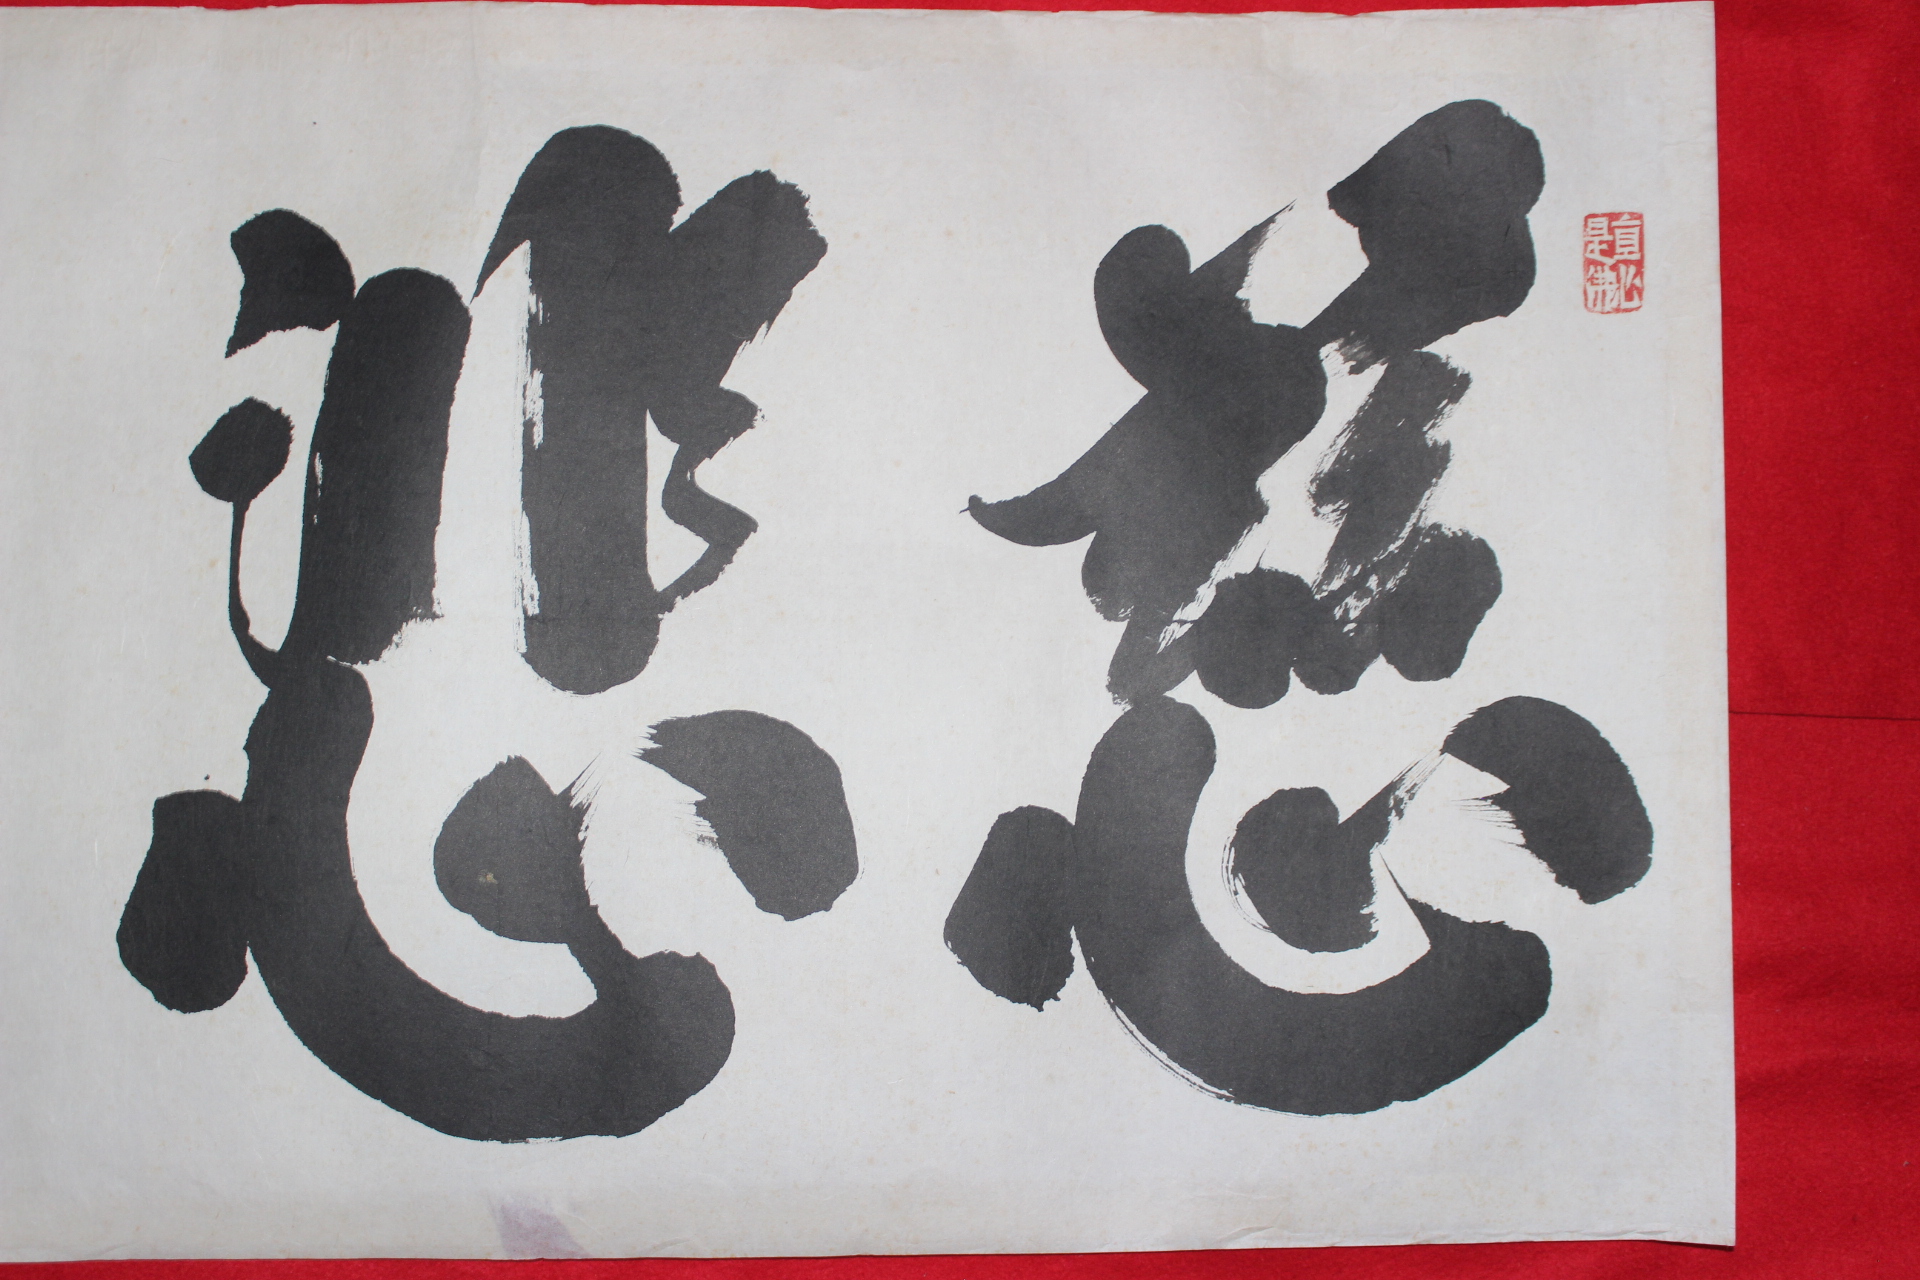 直心是佛
慈悲